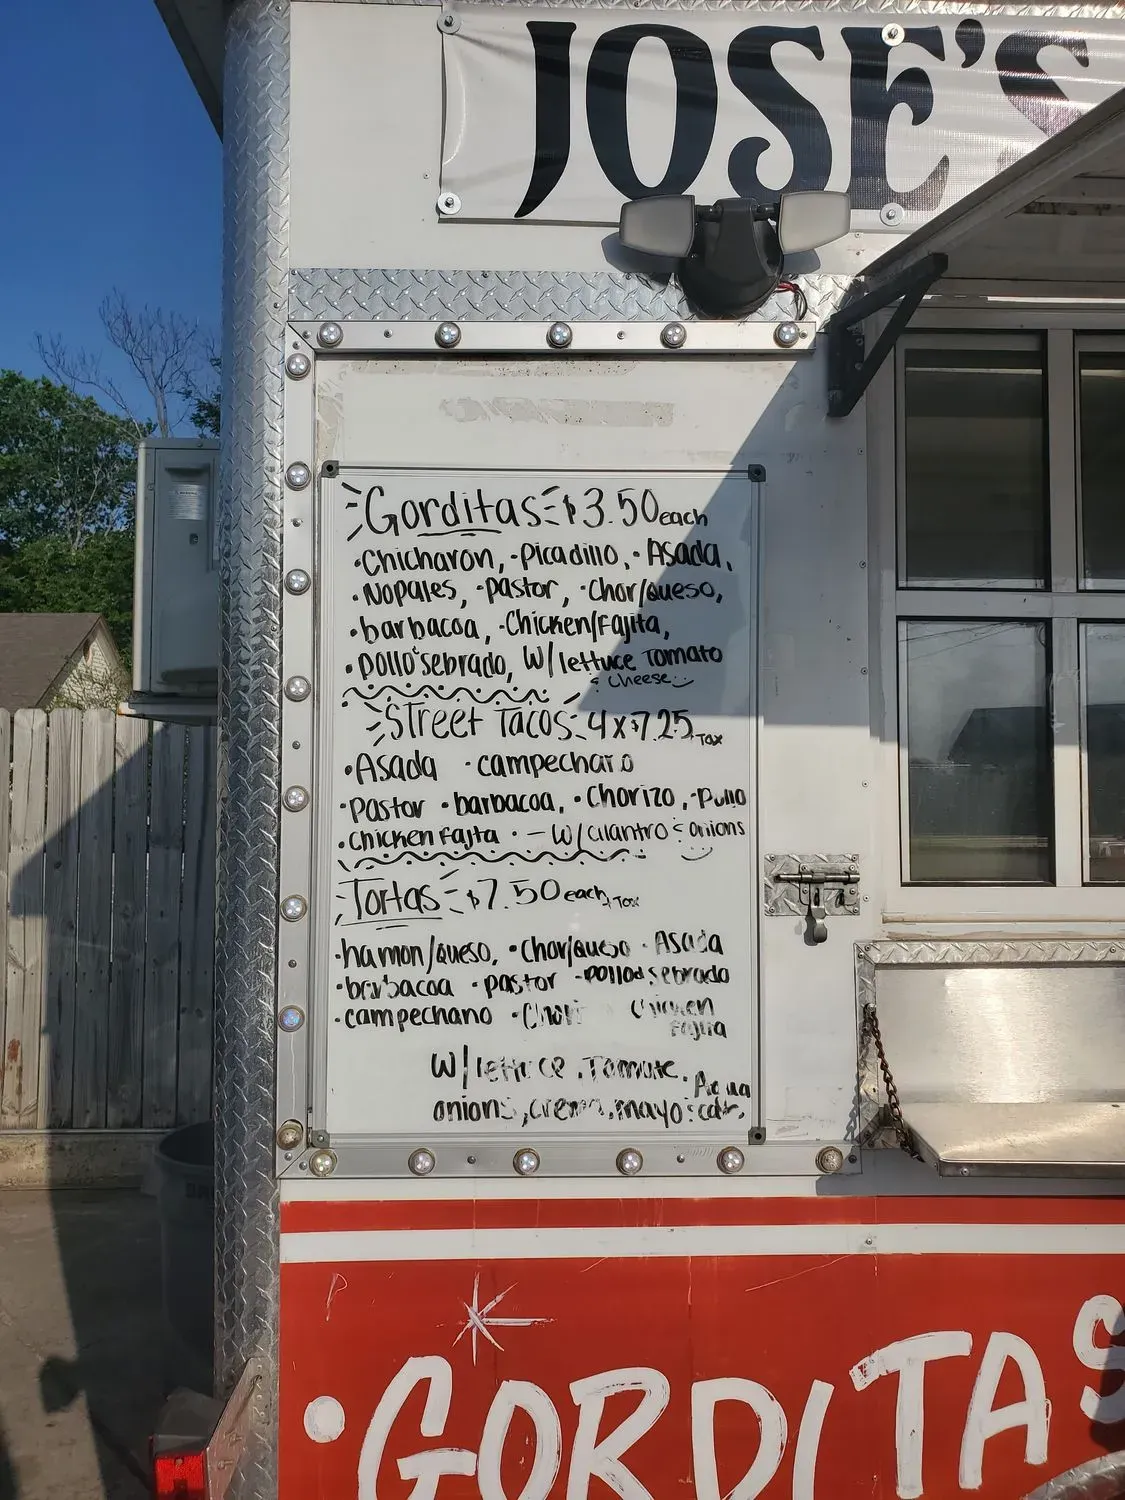 JOSE'S
Gorditas $3.50 each
·Chicharon, ·Picadillo, ·Asada,
·Nopales, ·pastor, ·Chor/queso,
·barbacoa, ·Chicken/Fajita,
·pollo sebrado, W/lettuce Tomato
& cheese
Street Tacos 4x$7.25 Tax
·Asada ·campechano
·Pastor ·barbacoa, ·Chorizo, ·Pollo
·Chicken Fajta · – W/cilantro & onions
Tortas $7.50 each, Tax
·hamon/queso, ·Chor/queso ·Asada
·barbacoa ·pastor ·pollo d sebrado
·campechano Chicken
Fajita
W/lettuce, Tomate,
onions, crema, mayo
·GORDITAS